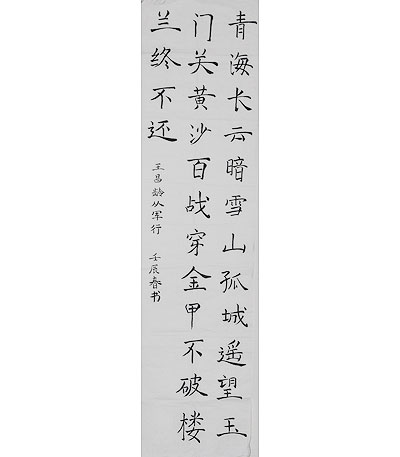 青海长云暗雪山孤城遥望玉
门关黄沙百战穿金甲不破楼
兰终不还
王昌龄从军行 壬辰春书